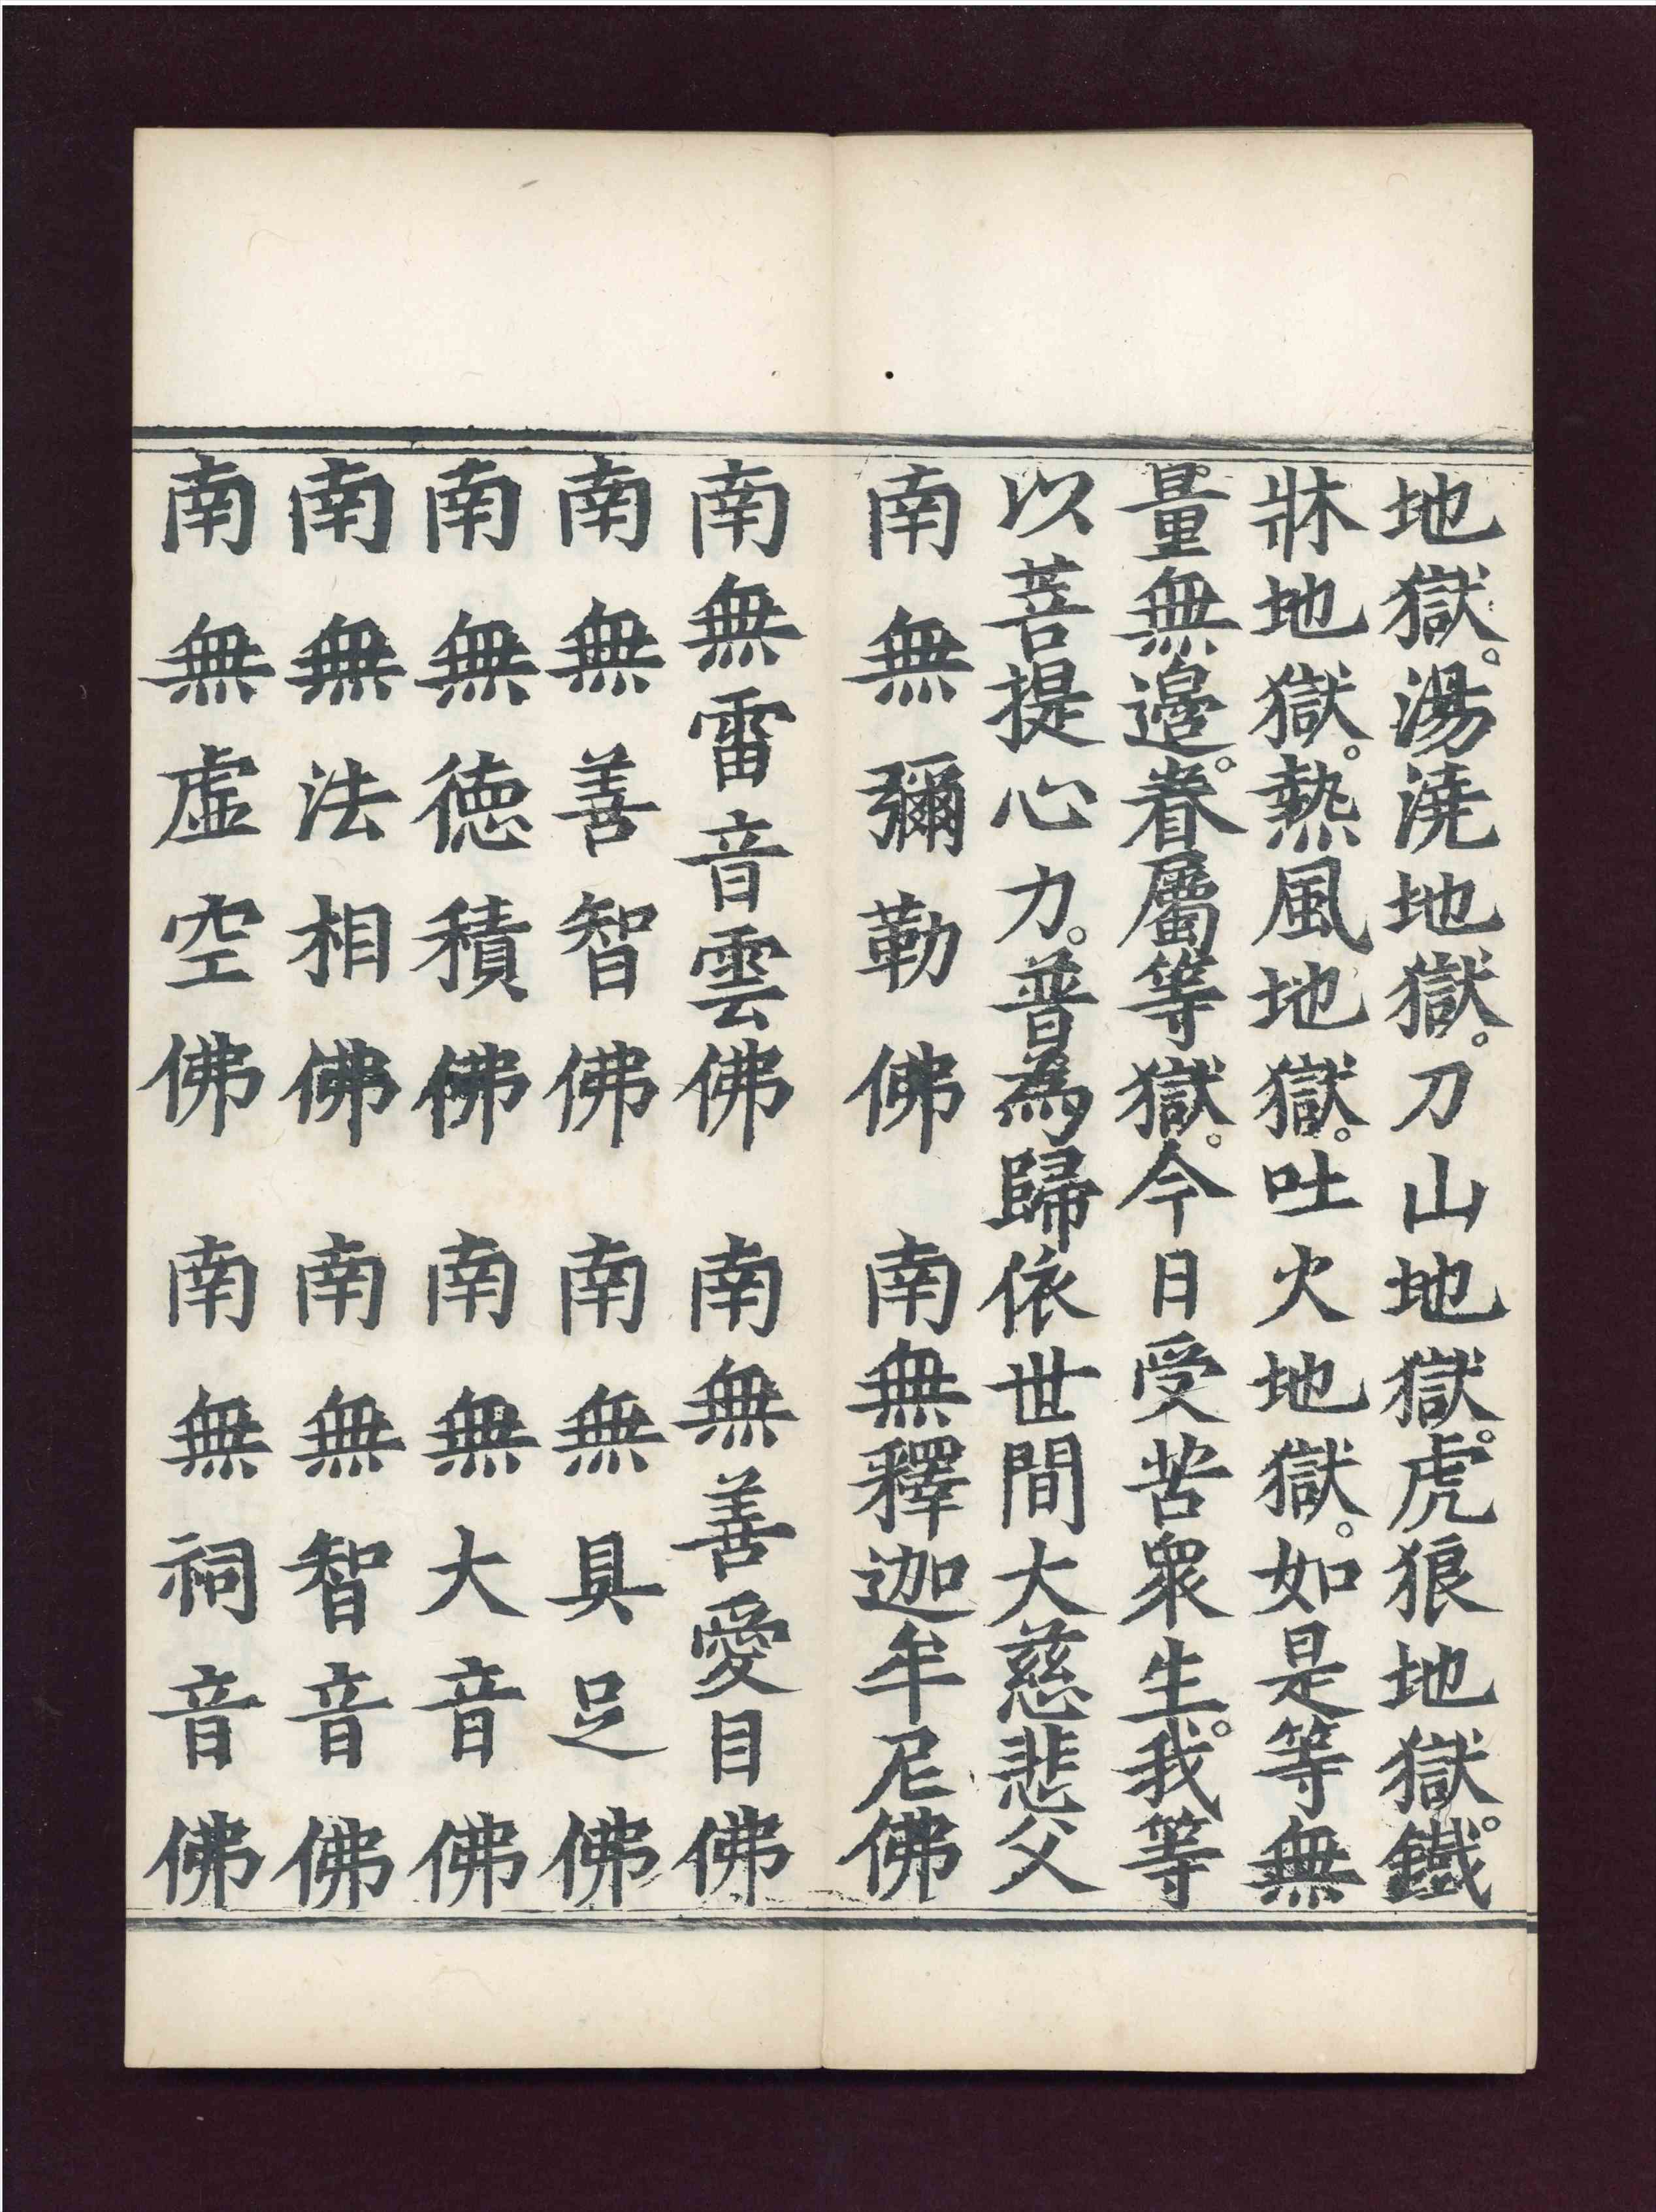 地獄。湯澆地獄。刀山地獄。虎狼地獄。鐵
牀地獄。熱風地獄。吐火地獄。如是等無
量無邊。眷屬等獄。今日受苦眾生。我等
以菩提心力。普為歸依世間大慈悲父
南無彌勒佛 南無釋迦牟尼佛
南無雷音雲佛 南無善愛目佛
南無善智佛 南無具足佛
南無德積佛 南無大音佛
南無法相佛 南無智音佛
南無虛空佛 南無祠音佛